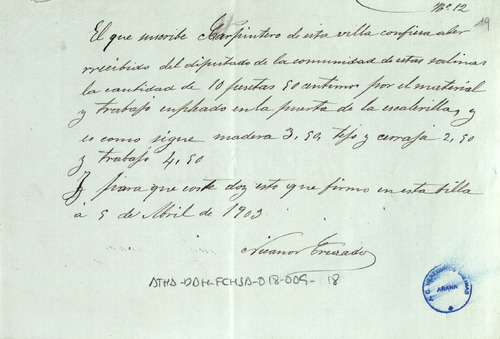 Nº. 12
19
El que suscribe Carpintero de esta villa confiesa aber
rrecibido del diputado de la comunidad de estas salinas
la cantidad de 10 pesetas 50 centimos por el material
y trabajo empleado en la puerta de la escalerilla, y
es como sigue madera 3,50, tejo y cerraja 2,50
y trabajo 4,50
Y para que coste doy esto que firmo en esta billa
a 5 de Abril de 1903
Nicanor Truzado
ATHA-DAH-FCHSA-D18-009-18
ARANA